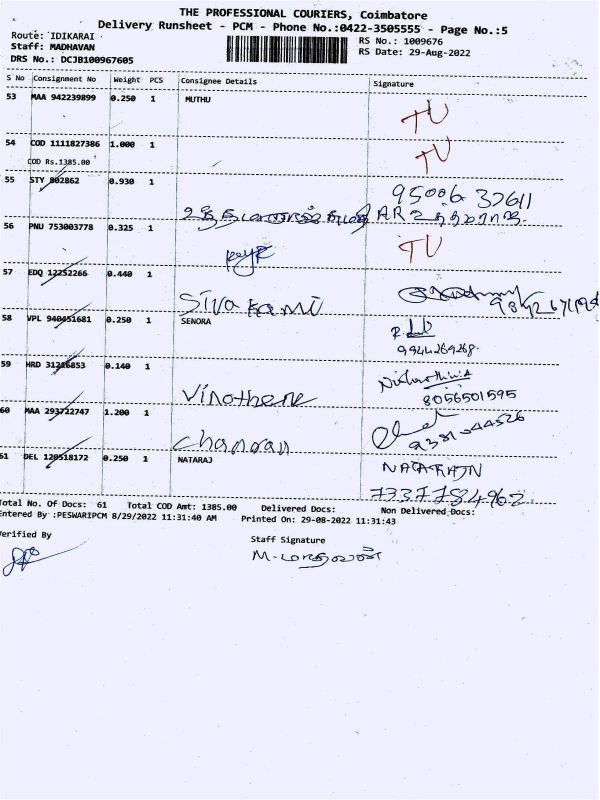 THE PROFESSIONAL COURIERS, Coimbatore
Delivery Runsheet - PCM - Phone No.:0422-3505555 - Page No.:5
Route: IDIKARAI
RS No.: 1009676
Staff: MADHAVAN
RS Date: 29-Aug-2022
DRS No.: DCJB100967605
S No Consignment No Weight PCS Consignee Details Signature
53 MAA 942239899 0.250 1 MUTHU TU
54 COD 1111827386 1.000 1 TU
COD Rs.1385.00
55 STY 802862 0.930 1 95006 37611
AR
56 PNU 753003778 0.325 1 TU
57 EDQ 12252266 0.440 1
Siva kami
58 VPL 940451681 0.250 1 SENORA
9944269268.
59 HRD 31216853 0.140 1
Vinothene 8056501595
60 MAA 293722747 1.200 1
Chandran
61 DEL 120518172 0.250 1 NATARAJ NATARAJN
7337784962
Total No. Of Docs: 61 Total COD Amt: 1385.00 Delivered Docs: Non Delivered Docs:
Entered By :PESWARIPCM 8/29/2022 11:31:40 AM Printed On: 29-08-2022 11:31:43
Verified By
Staff Signature
M-மாதவன்